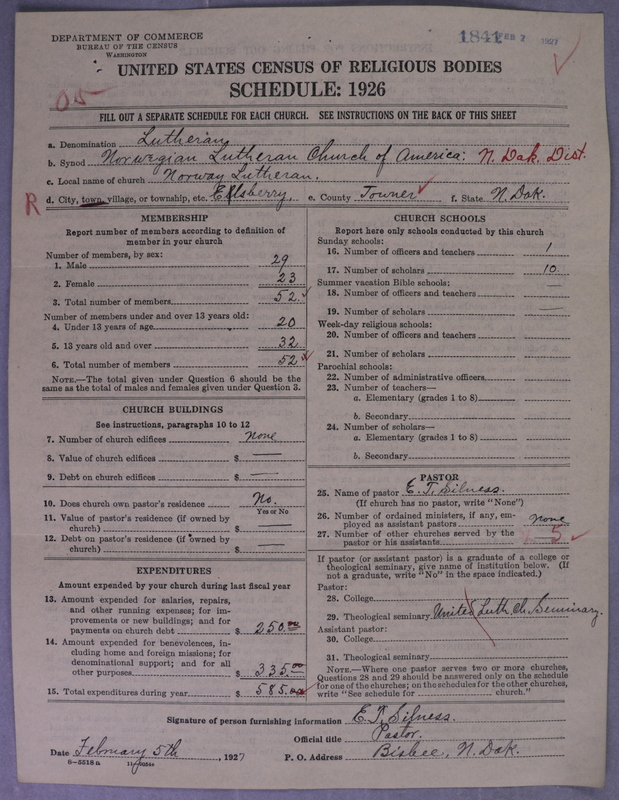 DEPARTMENT OF COMMERCE
BUREAU OF THE CENSUS
WASHINGTON
1841 FEB 7 1927
UNITED STATES CENSUS OF RELIGIOUS BODIES
SCHEDULE: 1926
FILL OUT A SEPARATE SCHEDULE FOR EACH CHURCH. SEE INSTRUCTIONS ON THE BACK OF THIS SHEET
a. Denomination Lutheran
b. Synod Norwegian Lutheran Church of America: N. Dak. Dist.
c. Local name of church Norway Lutheran.
R d. City, town, village, or township, etc. Ellsberry, e. County Towner f. State N. Dak.
MEMBERSHIP
Report number of members according to definition of
member in your church
Number of members, by sex:
1. Male 29
2. Female 23
3. Total number of members 52
Number of members under and over 13 years old:
4. Under 13 years of age 20
5. 13 years old and over 32
6. Total number of members 52
NOTE.—The total given under Question 6 should be the
same as the total of males and females given under Question 3.
CHURCH BUILDINGS
See instructions, paragraphs 10 to 12
7. Number of church edifices none
8. Value of church edifices $ —
9. Debt on church edifices $ —
10. Does church own pastor's residence No.
Yes or No
11. Value of pastor's residence (if owned by
church) $ —
12. Debt on pastor's residence (if owned by
church) $ —
EXPENDITURES
Amount expended by your church during last fiscal year
13. Amount expended for salaries, repairs,
and other running expenses; for im-
provements or new buildings; and for
payments on church debt $ 250.00
14. Amount expended for benevolences, in-
cluding home and foreign missions; for
denominational support; and for all
other purposes $ 335.00
15. Total expenditures during year $ 585.00
CHURCH SCHOOLS
Report here only schools conducted by this church
Sunday schools:
16. Number of officers and teachers 1
17. Number of scholars 10
Summer vacation Bible schools:
18. Number of officers and teachers —
19. Number of scholars —
Week-day religious schools:
20. Number of officers and teachers
21. Number of scholars
Parochial schools:
22. Number of administrative officers
23. Number of teachers—
a. Elementary (grades 1 to 8)
b. Secondary
24. Number of scholars—
a. Elementary (grades 1 to 8)
b. Secondary
PASTOR
25. Name of pastor E. T. Silness.
(If church has no pastor, write "None")
26. Number of ordained ministers, if any, em-
ployed as assistant pastors none
27. Number of other churches served by the
pastor or his assistants 5
If pastor (or assistant pastor) is a graduate of a college or
theological seminary, give name of institution below. (If
not a graduate, write "No" in the space indicated.)
Pastor:
28. College
29. Theological seminary United Luth. Ch. Seminary.
Assistant pastor:
30. College
31. Theological seminary
NOTE.—Where one pastor serves two or more churches,
Questions 28 and 29 should be answered only on the schedule
for one of the churches; on the schedules for the other churches,
write "See schedule for church."
Signature of person furnishing information E. T. Silness.
Official title Pastor.
Date February 5th, 1927 P. O. Address Bisbee, N. Dak.
8-5518a